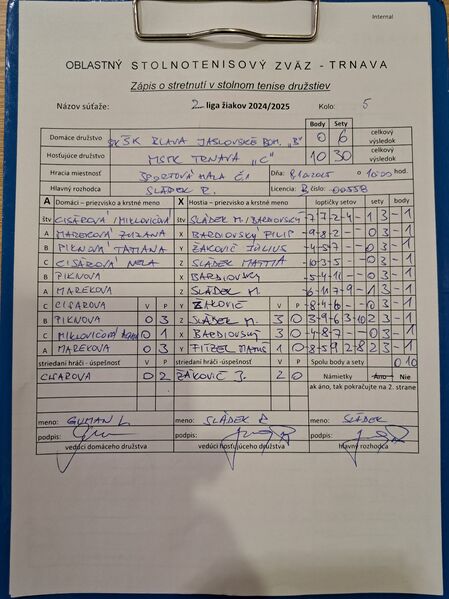 Internal
OBLASTNÝ STOLNOTENISOVÝ ZVÄZ - TRNAVA
Zápis o stretnutí v stolnom tenise družstiev
Názov súťaže: 2 liga žiakov 2024/2025 Kolo: 5
Body Sety
Domáce družstvo ŠK BLAVA JASLOVSKÉ BOH. „B" 0 6 celkový výsledok
Hosťujúce družstvo MSTK TRNAVA „C" 10 30 celkový výsledok
Hracia miestnosť ŠPORTOVÁ HALA Č.1 Dňa: o 10:00 hod.
Hlavný rozhodca SLÁDEK R. Licencia: B číslo: 00558
A Domáci – priezvisko a krstné meno X Hostia – priezvisko a krstné meno loptičky setov sety body
štv CISÁROVÁ / MIKLOVIČOVÁ štv SLÁDEK M. / BARDIOVSKÝ -7 -7 2 -4 1 3 - 1
A MAREKOVÁ ZUZANA X BARDIOVSKÝ FILIP -9 -8 -2 0 3 - 1
B PIKNOVÁ TATIANA Y ŽÁKOVIČ JÚLIUS -4 -5 -7 0 3 - 1
C CISÁROVÁ NELA Z SLÁDEK MATTIA -10 -3 -5 0 3 - 1
B PIKNOVÁ X BARDIOVSKÝ -5 -4 -11 0 3 - 1
A MAREKOVÁ Z SLÁDEK M. 1 3 - 1
C CISAROVA V P Y ŽÁKOVIČ V P -8 -4 -6 0 3 - 1
B PIKNOVA 0 3 Z SLÁDEK M. 3 0 2 3 - 1
C MIKLOVIČOVÁ 0 1 X BARDIOVSKÝ 3 0 -4 -8 -7 0 3 - 1
A MAREKOVA 0 3 Y FITZEL 1 0 -8 -5 9 2 -8 2 3 - 1
striedaní hráči - úspešnosť V P striedaní hráči - úspešnosť V P Spolu body a sety 0 10
CISAROVA 0 2 ŽÁKOVIČ J. 2 0 Námietky Áno Nie
ak áno, tak pokračujte na 2. strane
meno: GUMAN L. meno: SLÁDEK R. meno: SLÁDEK
podpis: podpis: podpis:
vedúci domáceho družstva vedúci hosťujúceho družstva hlavný rozhodca